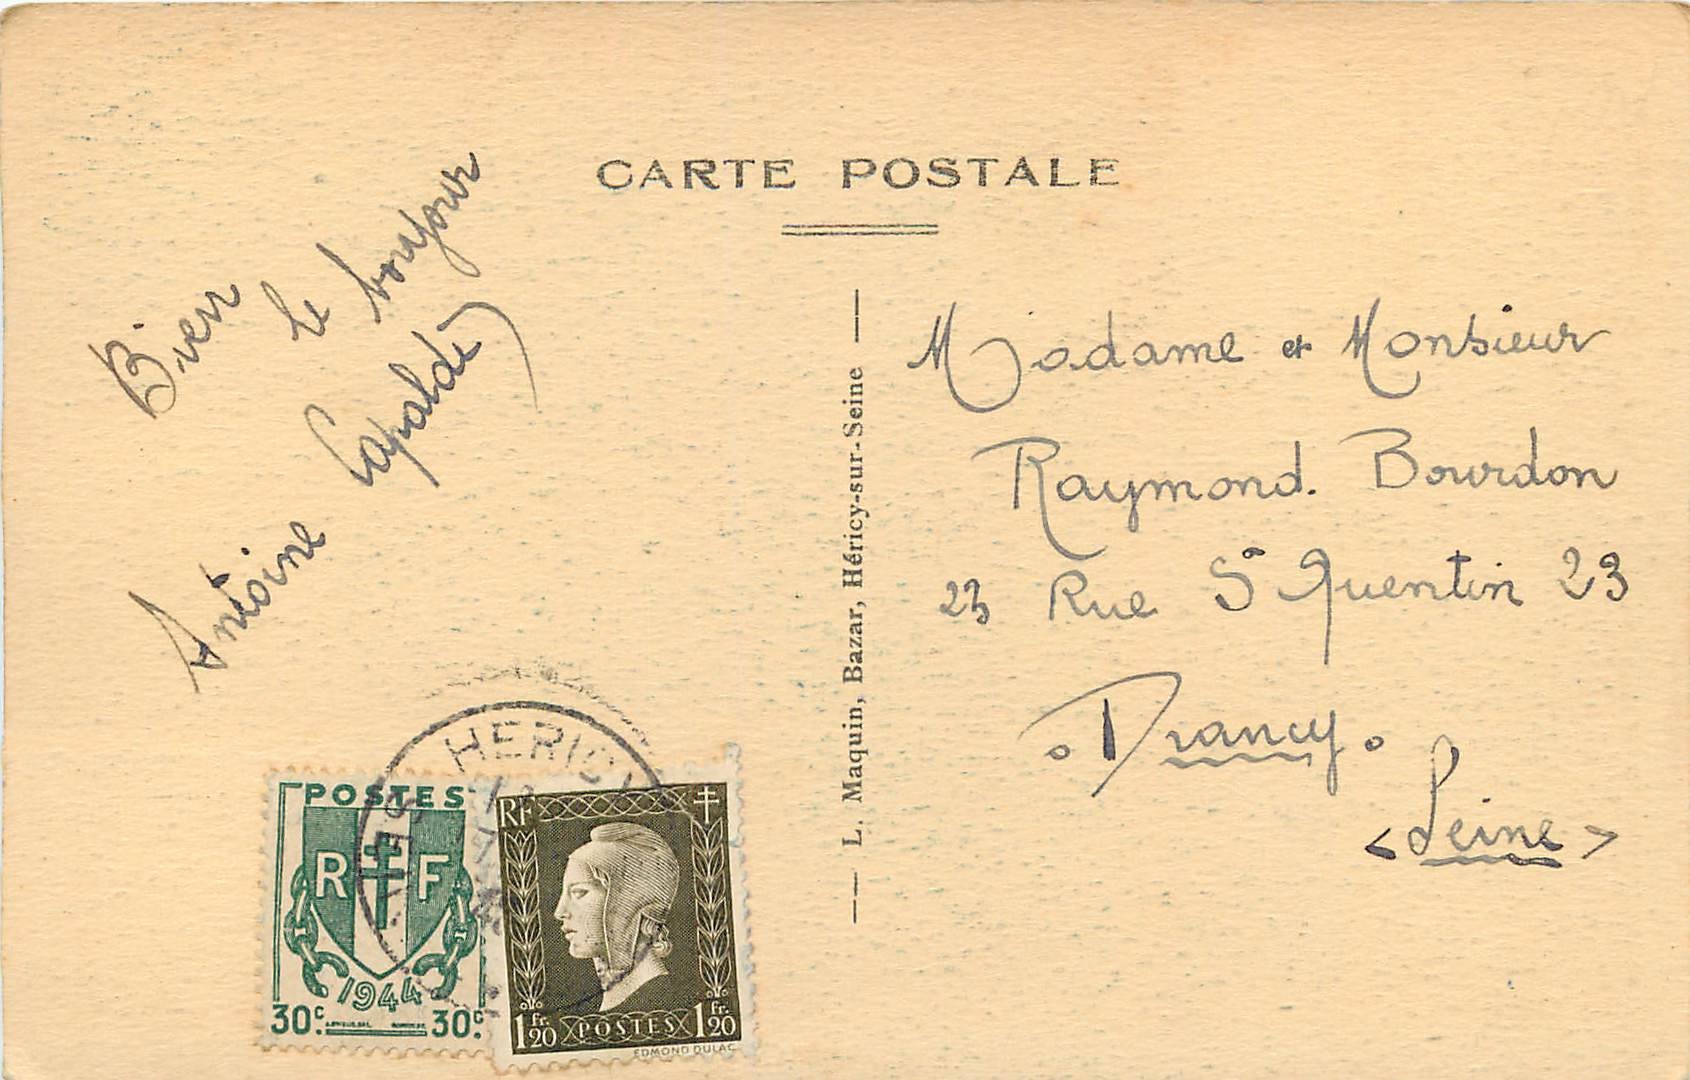 CARTE POSTALE
Bien le bonjour
Antoine Capaldi
L. Maquin, Bazar, Héricy-sur-Seine
Madame et Monsieur
Raymond. Bourdon
23 Rue St Quentin 23
Drancy
<Seine>
HERICY
POSTES
R F
1944
30c. 30c.
RF
1 fr. 20 POSTES 1 fr. 20
EDMOND DULAC